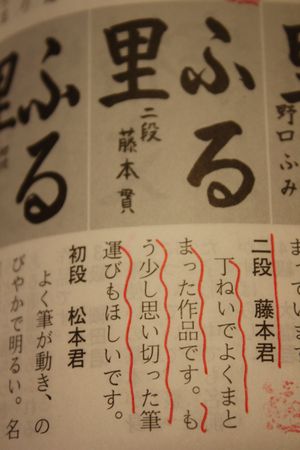 野口ふみ
ふる
里
二段
藤本貫
ふる
里
二段 藤本君
丁ねいでよくまと
まった作品です。も
う少し思い切った筆
運びもほしいです。
初段 松本君
よく筆が動き、の
びやかで明るい。名